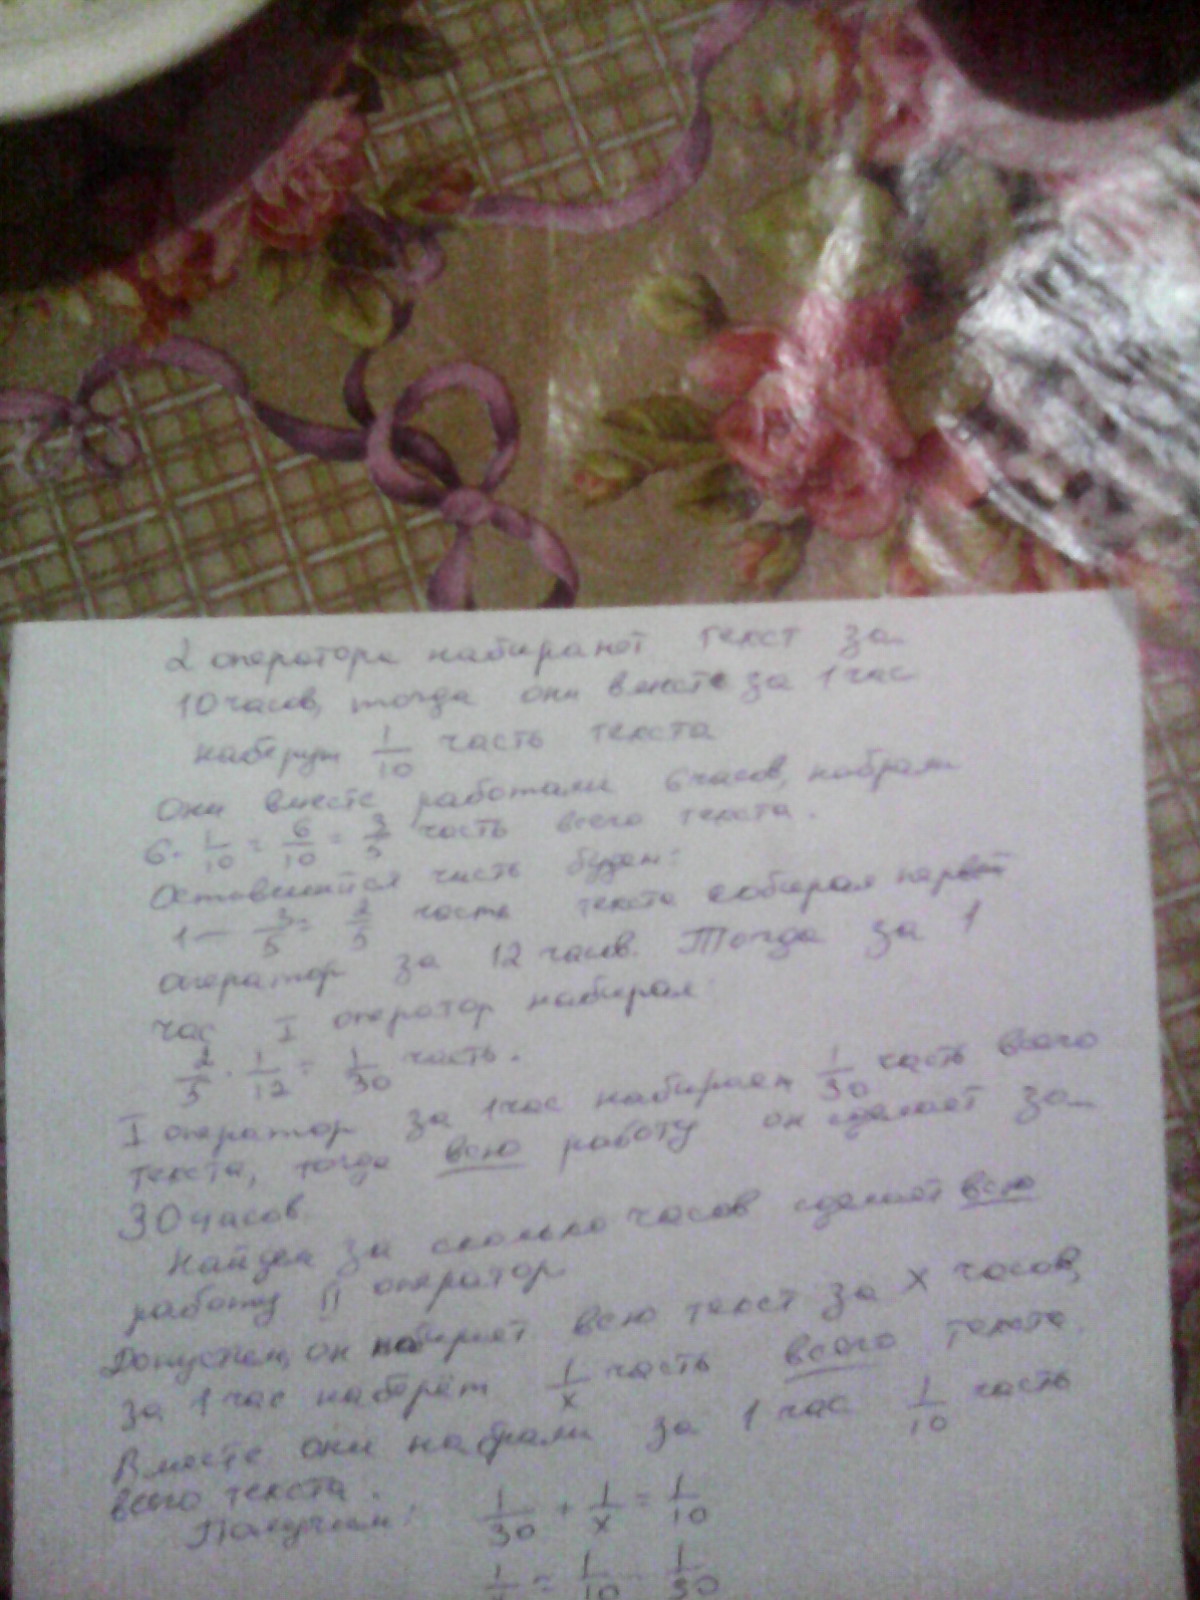 2 оператора набирают текст за
10 часов, тогда они вместе за 1 час
наберут 1/10 часть текста
Они вместе работали 6 часов, набрали
6 · 1/10 = 6/10 = 3/5 часть всего текста.
Оставшийся часть будет:
1 — 3/5 = 2/5 часть текста собирал первый
оператор за 12 часов. Тогда за 1
час I оператор набирал
2/5 · 1/12 = 1/30 часть.
I оператор за 1 час набирает 1/30 часть всего
текста, тогда всю работу он сделает за
30 часов
Найдем за сколько часов сделает всю
работу II оператор
Допустим, он наберает всю текст за x часов,
за 1 час наберёт 1/x часть всего текста.
Вместе они набрали за 1 час 1/10 часть
всего текста.
Получим: 1/30 + 1/x = 1/10
1/x = 1/10 - 1/30